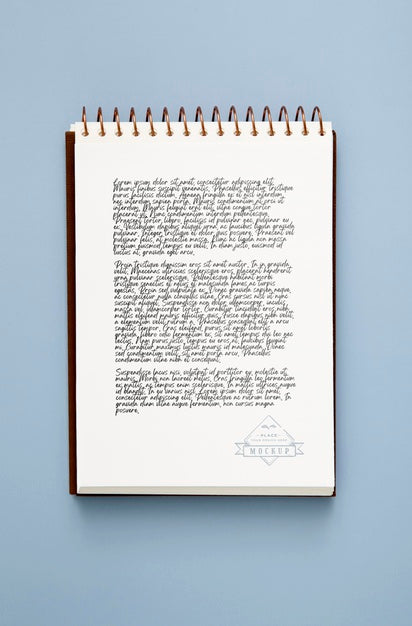 Lorem ipsum dolor sit amet, consectetur adipiscing elit.
Mauris finibus suscipit venenatis. Phasellus efficitur tristique
purus facilisis dictum. Aenean fringilla ex eu nisi
nec interdum sapien porta. Mauris condimentum at orci ut
interdum. Mauris feugiat erat elit, vitae congue tortor
placerat vi. Nunc condimentum interdum pellentesque.
Praesent tortor libero, facilisis id pulvinar nec, pulvinar eu
ex. Vestibulum dapibus aliquet urna, ac faucibus ligula gravida
pulvinar. Integer tristique et dolor quis posuere. Praesent vel
pulvinar felis, at molestie massa. Nunc ac ligula non massa
pretium euismod tempus eu velit. In diam justo, euismod ut
luctus at, gravida eget arcu.
Proin tristique dignissim eros sit amet auctor. In in gravida
velit. Maecenas ultricies scelerisque eros, placerat hendrerit
urna pulvinar scelerisque. Pellentesque habitant morbi
tristique senectus et netus et malesuada fames ac turpis
egestas. Proin sed vulputate ex. Donec gravida sapien neque,
ac consectetur nulla convallis vitae. Cras cursus nisl ut nunc
suscipit aliquet. Suspendisse non dolor ullamcorper, iaculis
massa vel, ullamcorper tortor. Curabitur tincidunt eros nibh,
mattis eleifend mauris efficitur quis. Fusce dapibus nibh velit,
a elementum velit rutrum a. Phasellus consequat elit a arcu
sagittis tempor. Cras eleifend, purus sit amet lobortis
gravida, libero odio fermentum ex, sit amet tempus dui leo nec
lectus. Nam purus justo, tempus eu eros at, faucibus feugiat
mi. Curabitur maximus luctus mauris id malesuada. Donec
sed condimentum velit, sit amet porta arcu. Phasellus
condimentum vitae nibh et consequat.
Suspendisse lacus nisi, volutpat id porttitor eu, molestie ut
mauris. Morbi non laoreet metus. Cras fringilla leo fermentum
ex mattis, ac tempus enim scelerisque. In mattis ultrices augue
id blandit. In eu varius nisl. Lorem ipsum dolor sit amet,
consectetur adipiscing elit. Pellentesque ac rutrum lorem. In
gravida diam vitae augue fermentum, non cursus magna
posuere.
PLACE
YOUR DESIGN HERE
MOCKUP